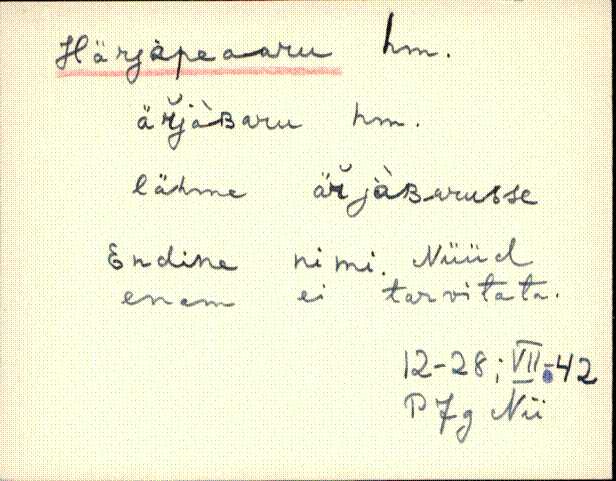 Härjapeaaru hm.
är̆jàʙaru hm.
lähme är̆jàʙarusse
Endine nimi. Nüüd
enam ei tarvitata.
12-28; VII-42
P7g Nii